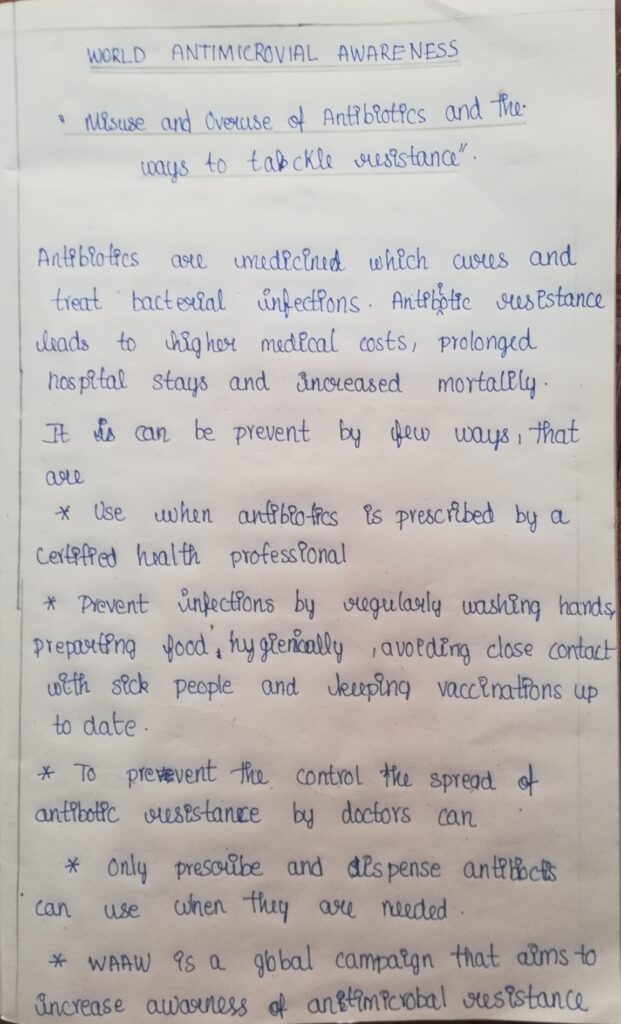 WORLD ANTIMICROVIAL AWARENESS
" Misuse and Overuse of Antibiotics and the
ways to tabckle resistance".
Antibiotics are medicined which cures and
treat bacterial infections. Antibiotic resistance
leads to higher medical costs, prolonged
hospital stays and increased mortalily.
It is can be prevent by few ways, that
are
* Use when antibiotics is prescribed by a
Certified health professional
* Prevent infections by regularly washing hands,
preparting food, hygienically, avoiding close contact
with sick people and keeping vaccinations up
to date.
* To prevevent the control the spread of
antibotic resistance by doctors can
* Only prescribe and dispense antibiocts
can use when they are needed.
* WAAW is a global campaign that aims to
increase awarness of antimicrobal resistance